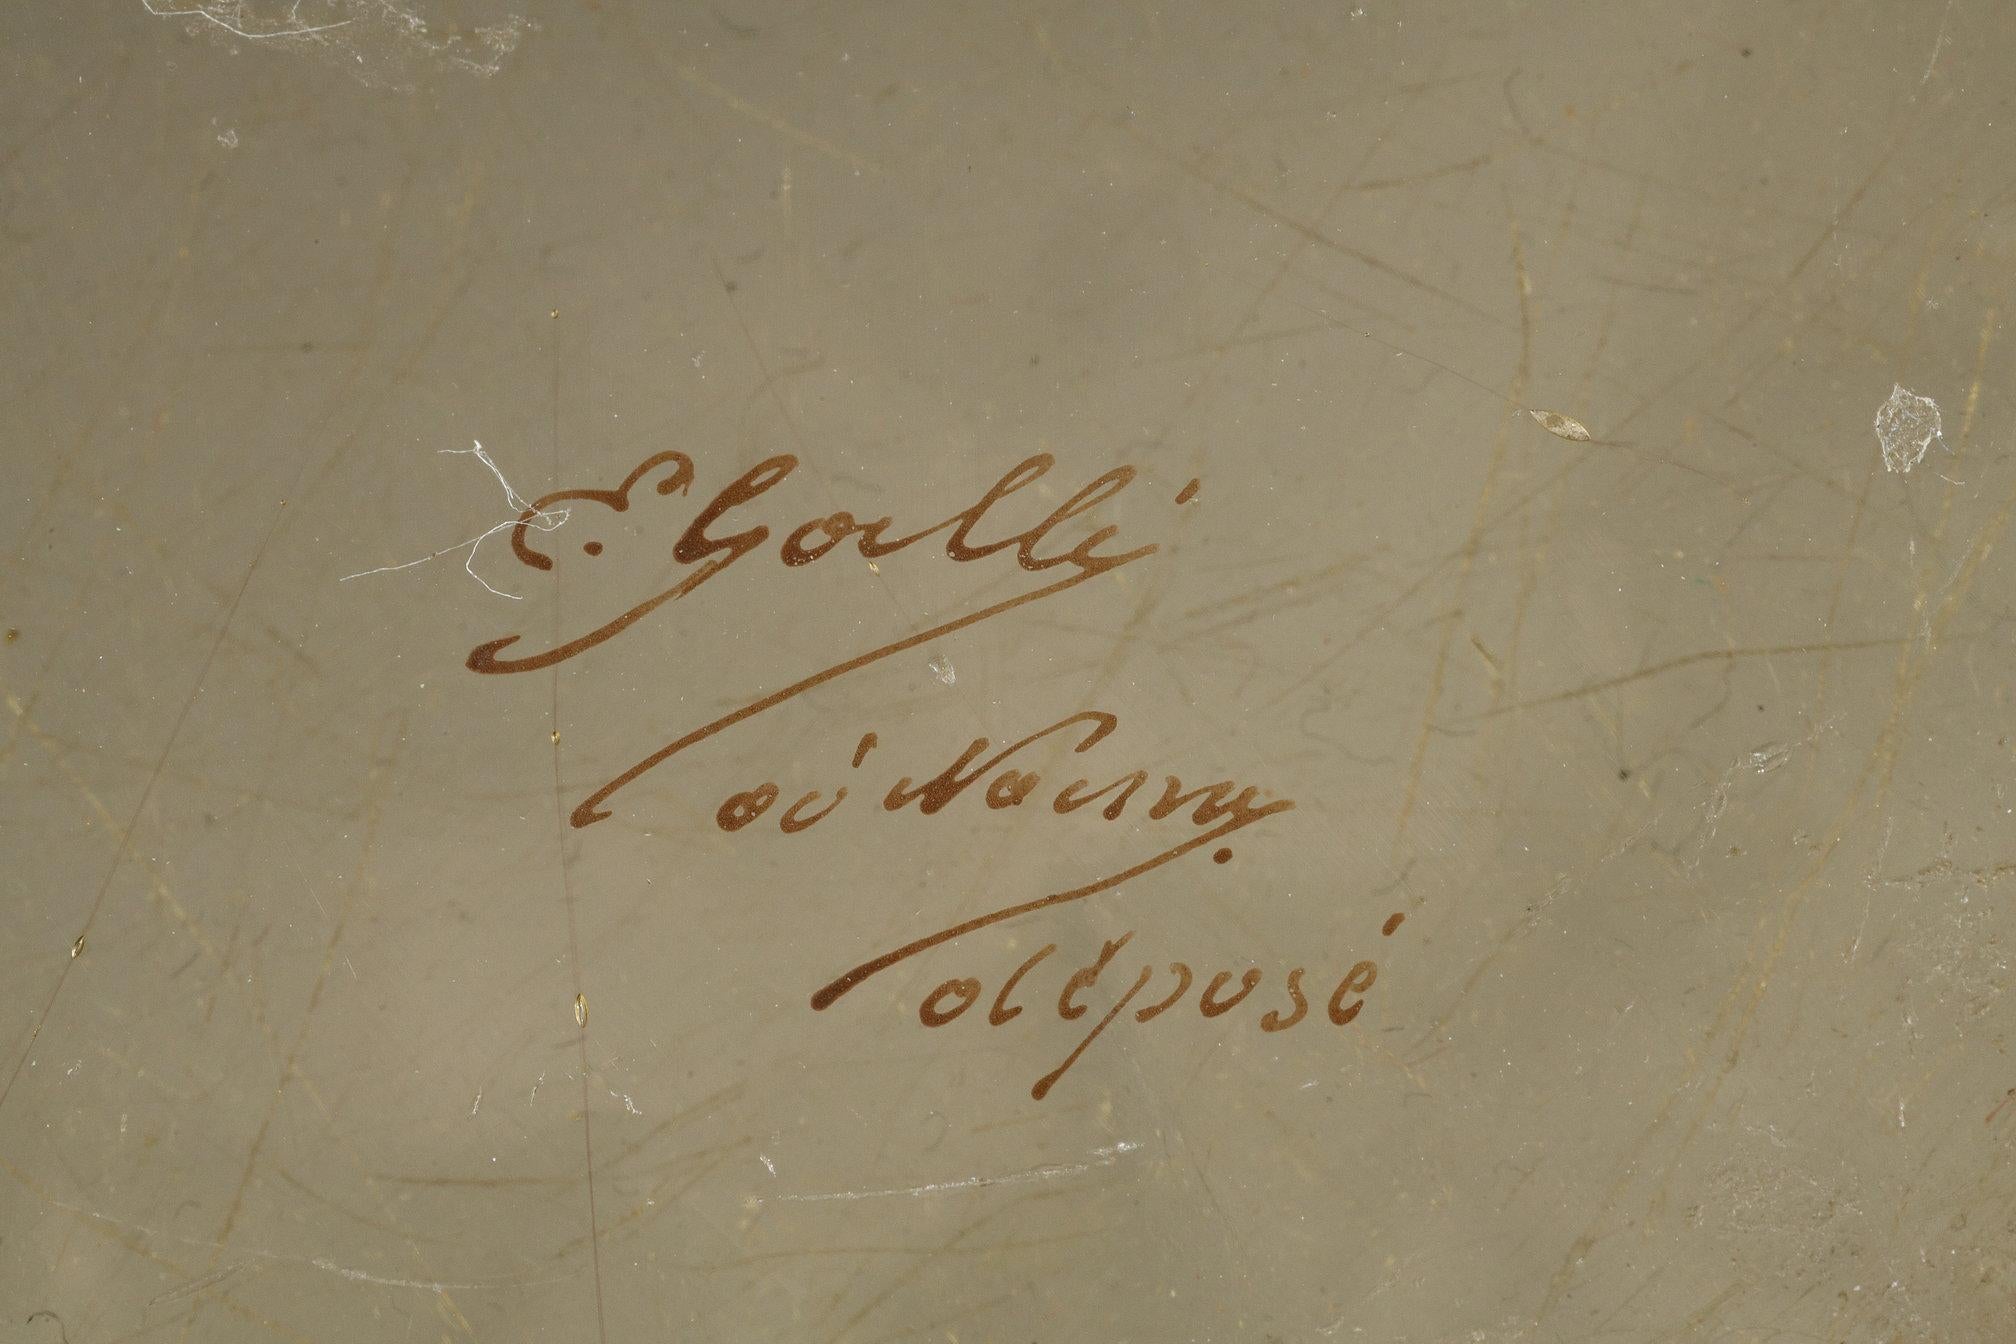 E. Gallé
à Nancy
déposé